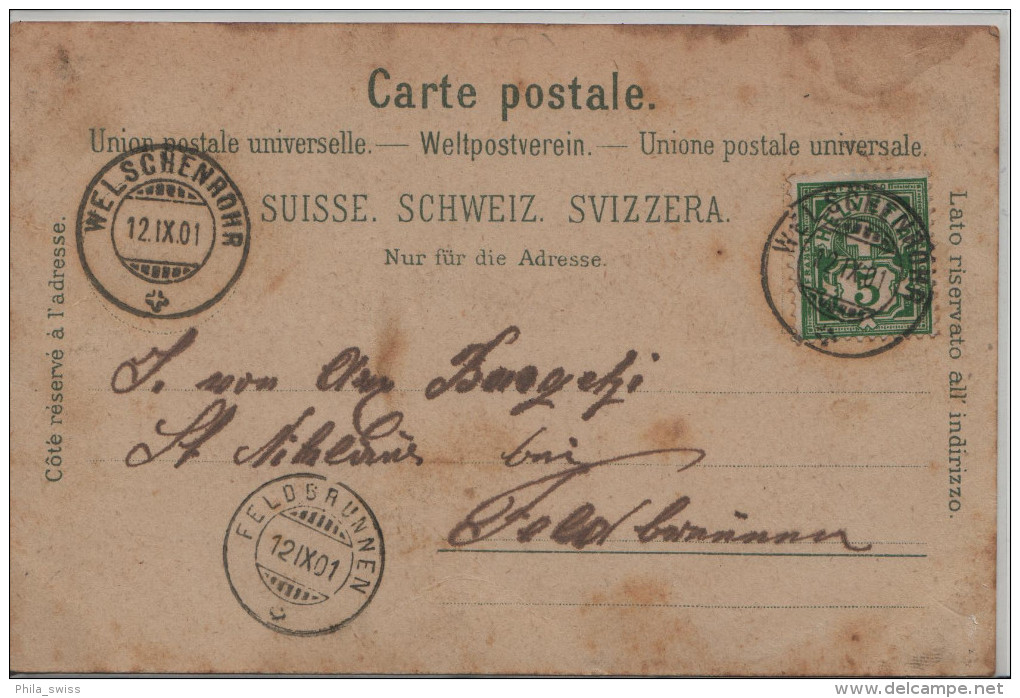 Carte postale.
Union postale universelle. — Weltpostverein. — Unione postale universale.
SUISSE. SCHWEIZ. SVIZZERA.
Nur für die Adresse.
Côté réservé à l'adresse.
Lato riservato all' indirizzo.
WELSCHENROHR
12.IX.01
WELSCHENROHR
12.IX.01
HELVETIA
5
J. von Arx
St. Niklaus bei
Feldbrunnen
FELDBRUNNEN
12 IX 01
Phila_swiss
delcampe.net